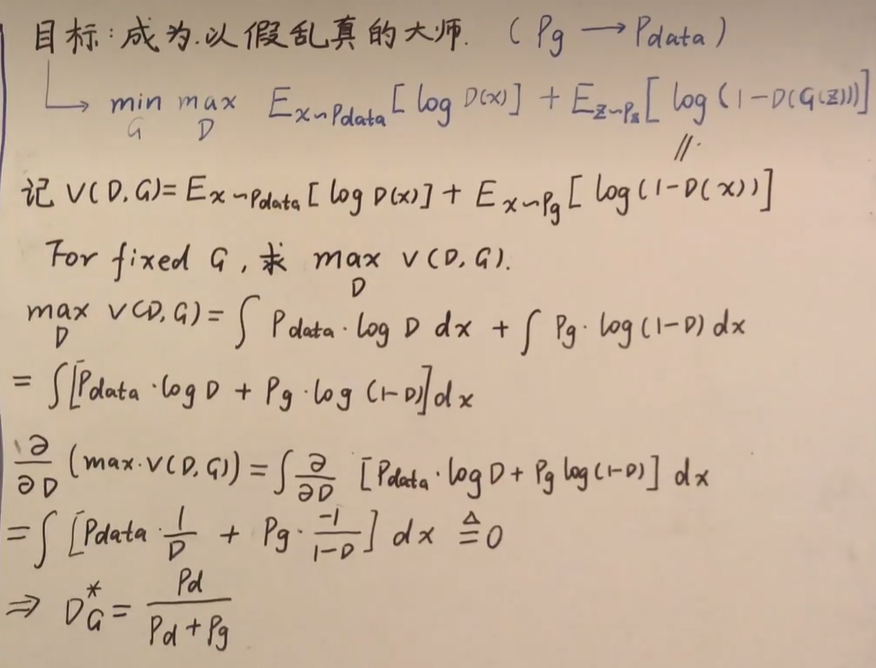 目标:成为以假乱真的大师. (Pg → Pdata)
↳ min_G max_D E_{x∼Pdata}[log D(x)] + E_{z∼Pz}[log(1-D(G(z)))]
记 V(D,G)=E_{x∼Pdata}[log D(x)] + E_{x∼Pg}[log(1-D(x))]
For fixed G, 求 max_D V(D,G).
max_D V(D,G) = ∫ Pdata·log D dx + ∫ Pg·log(1-D) dx
= ∫[Pdata·log D + Pg·log(1-D)]dx
∂/∂D (max·V(D,G)) = ∫ ∂/∂D [Pdata·log D + Pg log(1-D)] dx
= ∫ [Pdata·1/D + Pg·-1/(1-D)] dx ≜ 0
⇒ D*_G = Pd/(Pd+Pg)